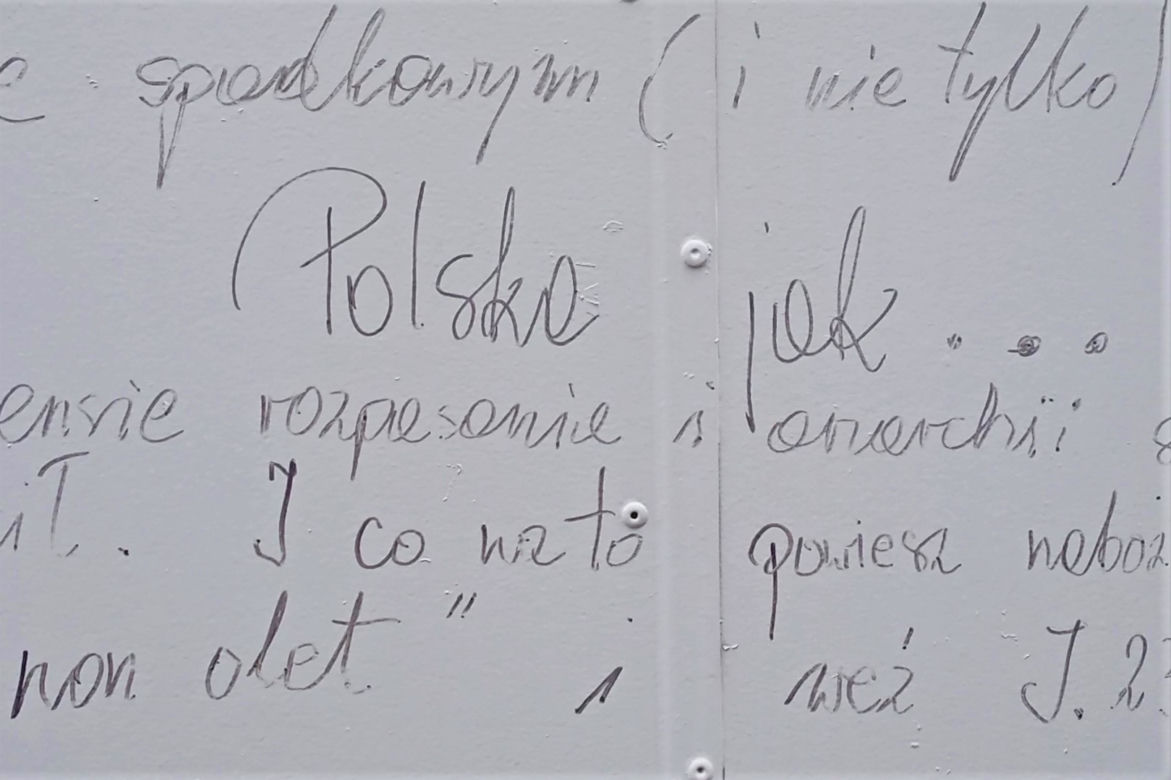 e spadkowym (i nie tylko)
Polska jak ...
ensie rozpasanie i anarchii
I co na to powiesz naboż
non olet" i weź J. 2